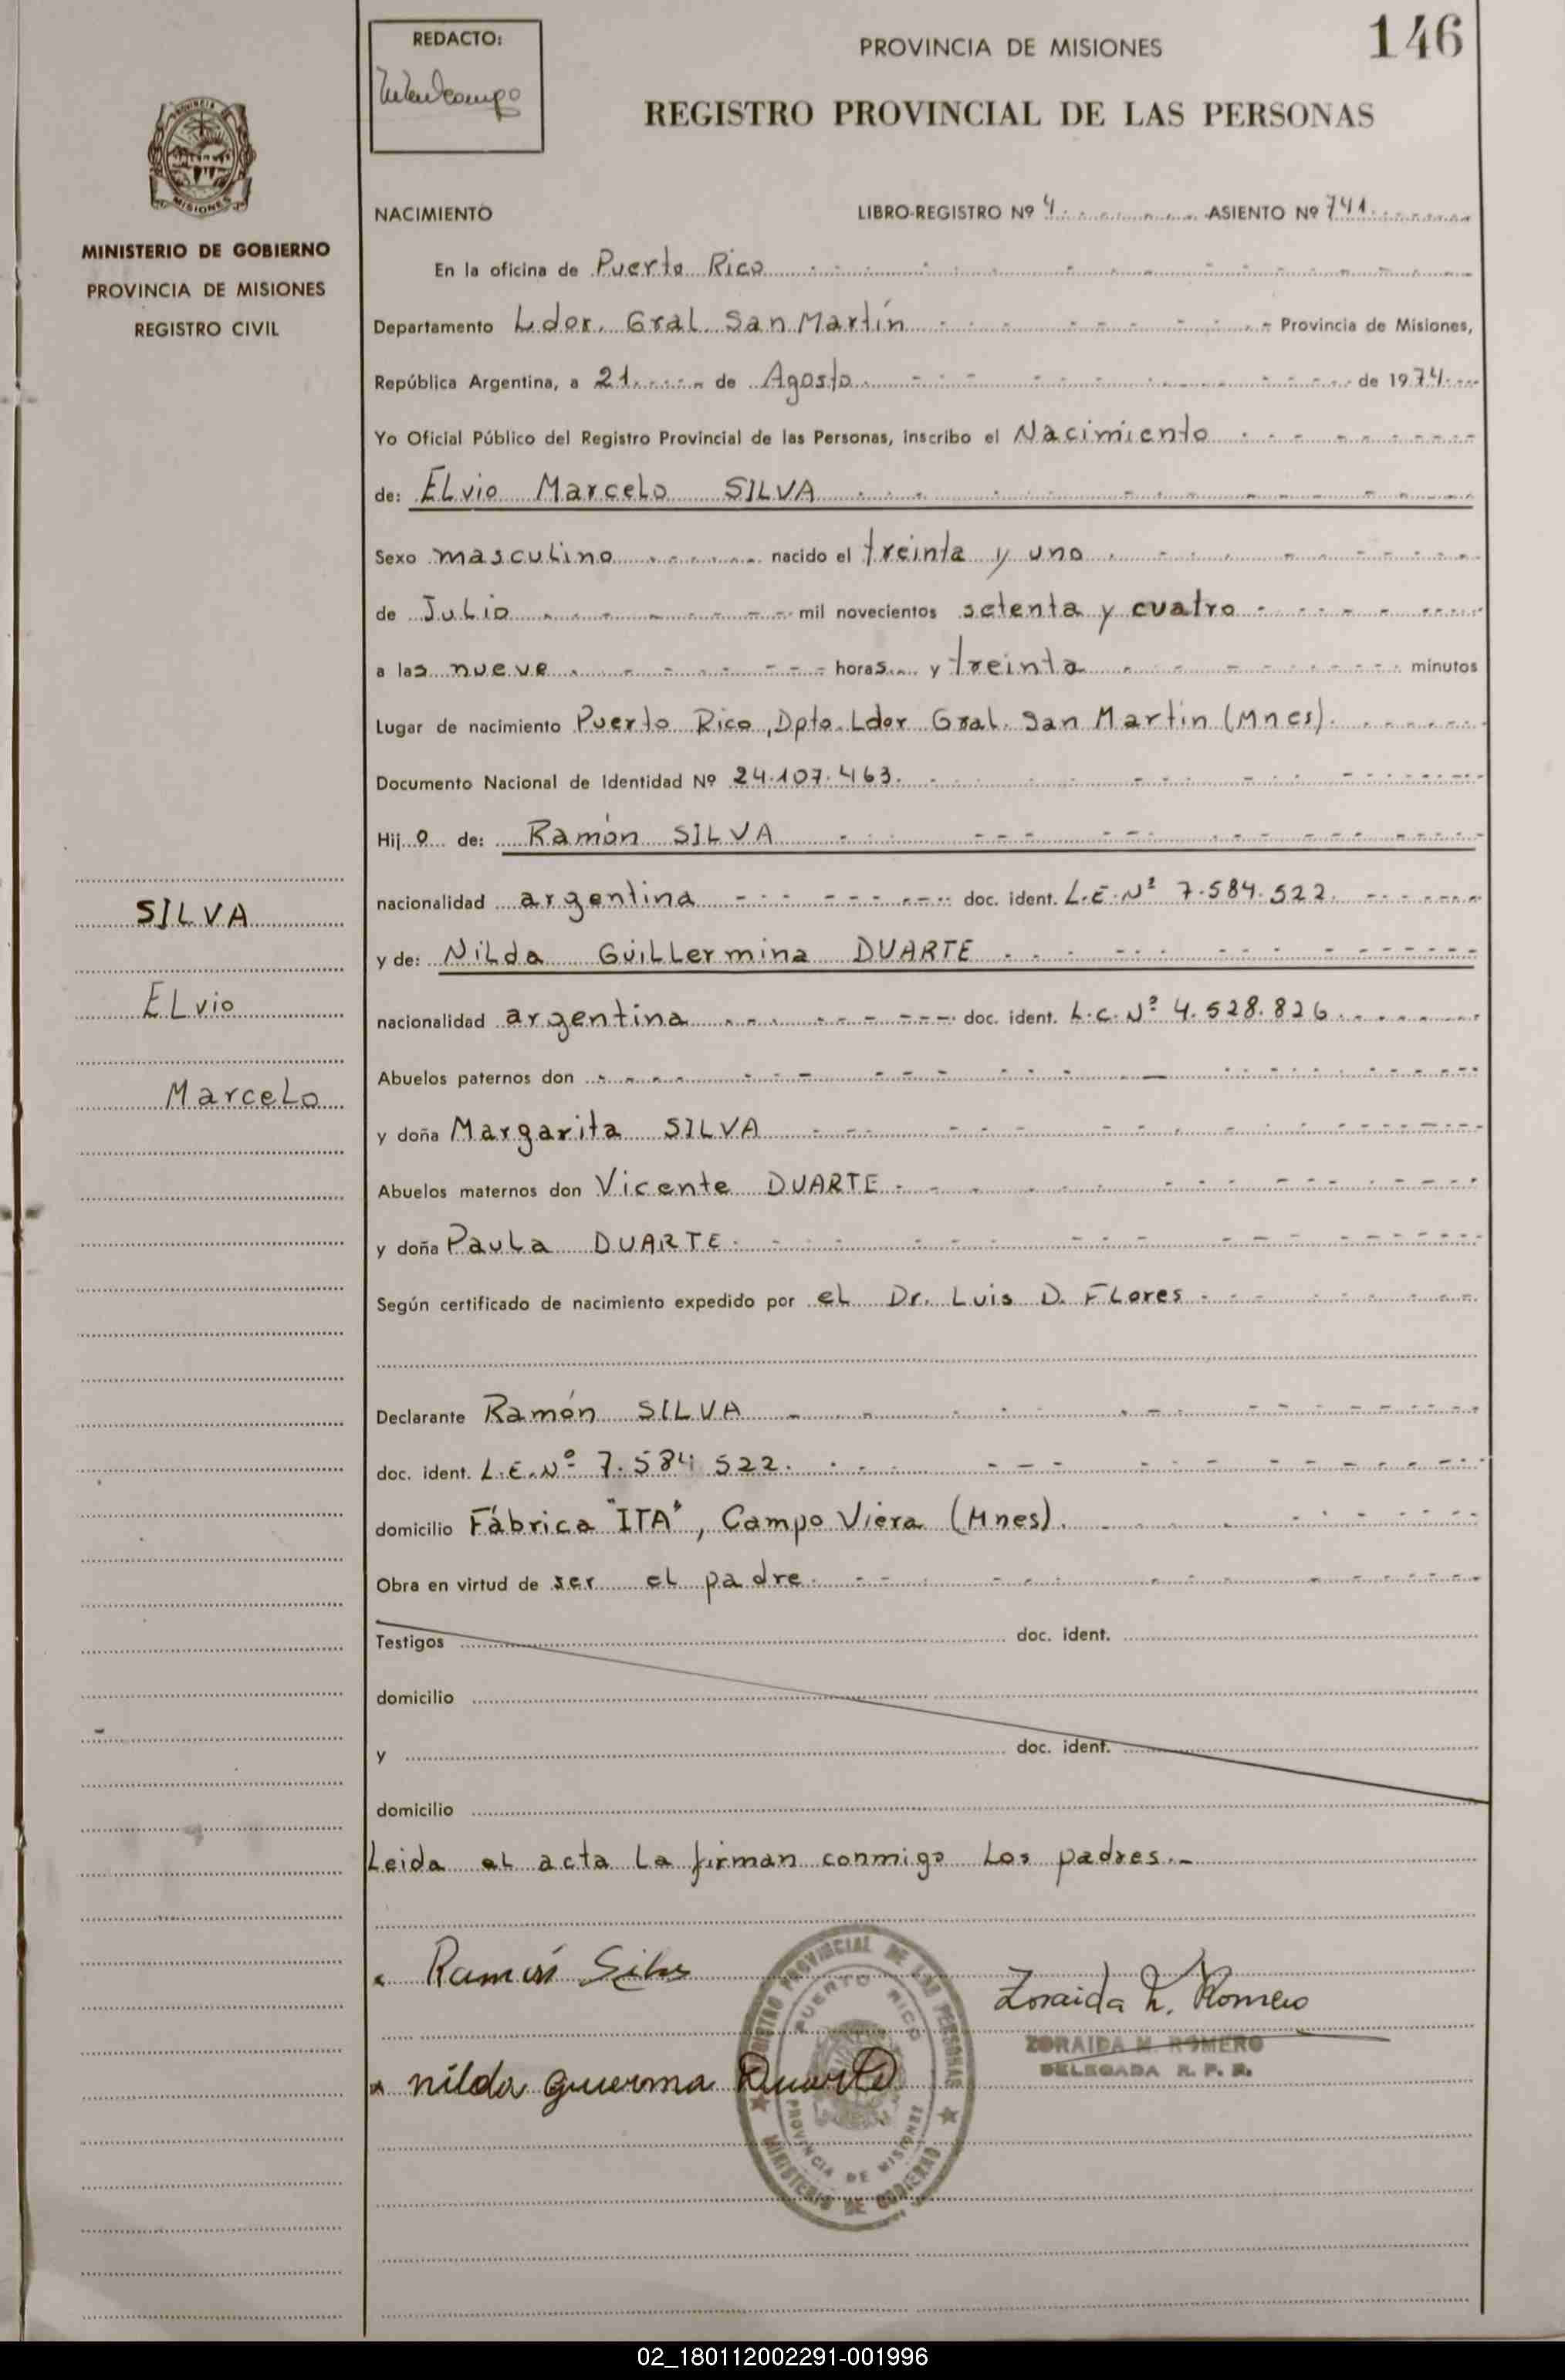 146
REDACTO:
PROVINCIA DE MISIONES
REGISTRO PROVINCIAL DE LAS PERSONAS
MISIONES
MINISTERIO DE GOBIERNO
PROVINCIA DE MISIONES
REGISTRO CIVIL
SILVA
ELvio
Marcelo
NACIMIENTO LIBRO-REGISTRO Nº 4 ASIENTO Nº 741
En la oficina de Puerto Rico
Departamento Ldor. Gral. San Martín Provincia de Misiones,
República Argentina, a 21 de Agosto de 1974
Yo Oficial Público del Registro Provincial de las Personas, inscribo el Nacimiento
de: ELvio Marcelo SILVA
Sexo masculino nacido el treinta y uno
de Julio mil novecientos setenta y cuatro
a las nueve horas y treinta minutos
Lugar de nacimiento Puerto Rico, Dpto. Ldor Gral. San Martin (Mnes).
Documento Nacional de Identidad Nº 24.107.463.
Hijo de: Ramón SILVA
nacionalidad argentina doc. ident. L.E. Nº 7.584.522.
y de: Nilda Guillermina DUARTE
nacionalidad argentina doc. ident. L.C. Nº 4.528.826
Abuelos paternos don
y doña Margarita SILVA
Abuelos maternos don Vicente DUARTE
y doña Paula DUARTE.
Según certificado de nacimiento expedido por el Dr. Luis D. Flores
Declarante Ramón SILVA
doc. ident. L.E. Nº 7.584 522.
domicilio Fábrica "ITA", Campo Viera (Mnes).
Obra en virtud de ser el padre.
Testigos doc. ident.
domicilio
y doc. ident.
domicilio
Leida el acta la firman conmigo los padres.-
Ramón Silva
Zoraida M. Romero
ZORAIDA M. ROMERO
DELEGADA R. P. P.
nilda guerma Duarte
REGISTRO PROVINCIAL DE LAS PERSONAS
PUERTO RICO
PROVINCIA DE MISIONES
MINISTERIO DE GOBIERNO
02_180112002291-001996